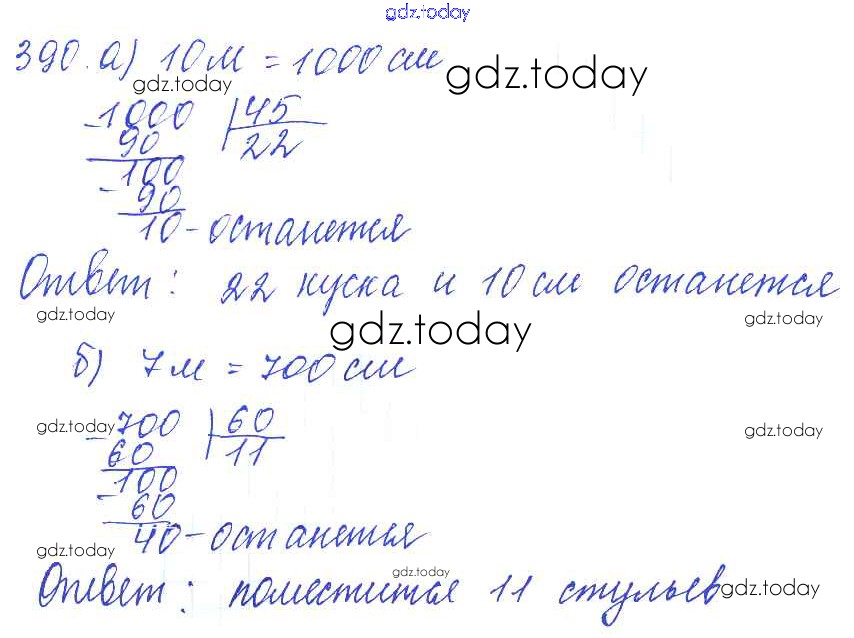 gdz.today
390. а) 10 м = 1000 см
gdz.today gdz.today
- 1000 | 45
90 22
- 100
90
10 - останется
Ответ: 22 куска и 10 см останется
gdz.today gdz.today gdz.today
б) 7 м = 700 см
gdz.today - 700 | 60 gdz.today
60 11
- 100
60
40 - останется
gdz.today gdz.today gdz.today
Ответ: поместится 11 стульев